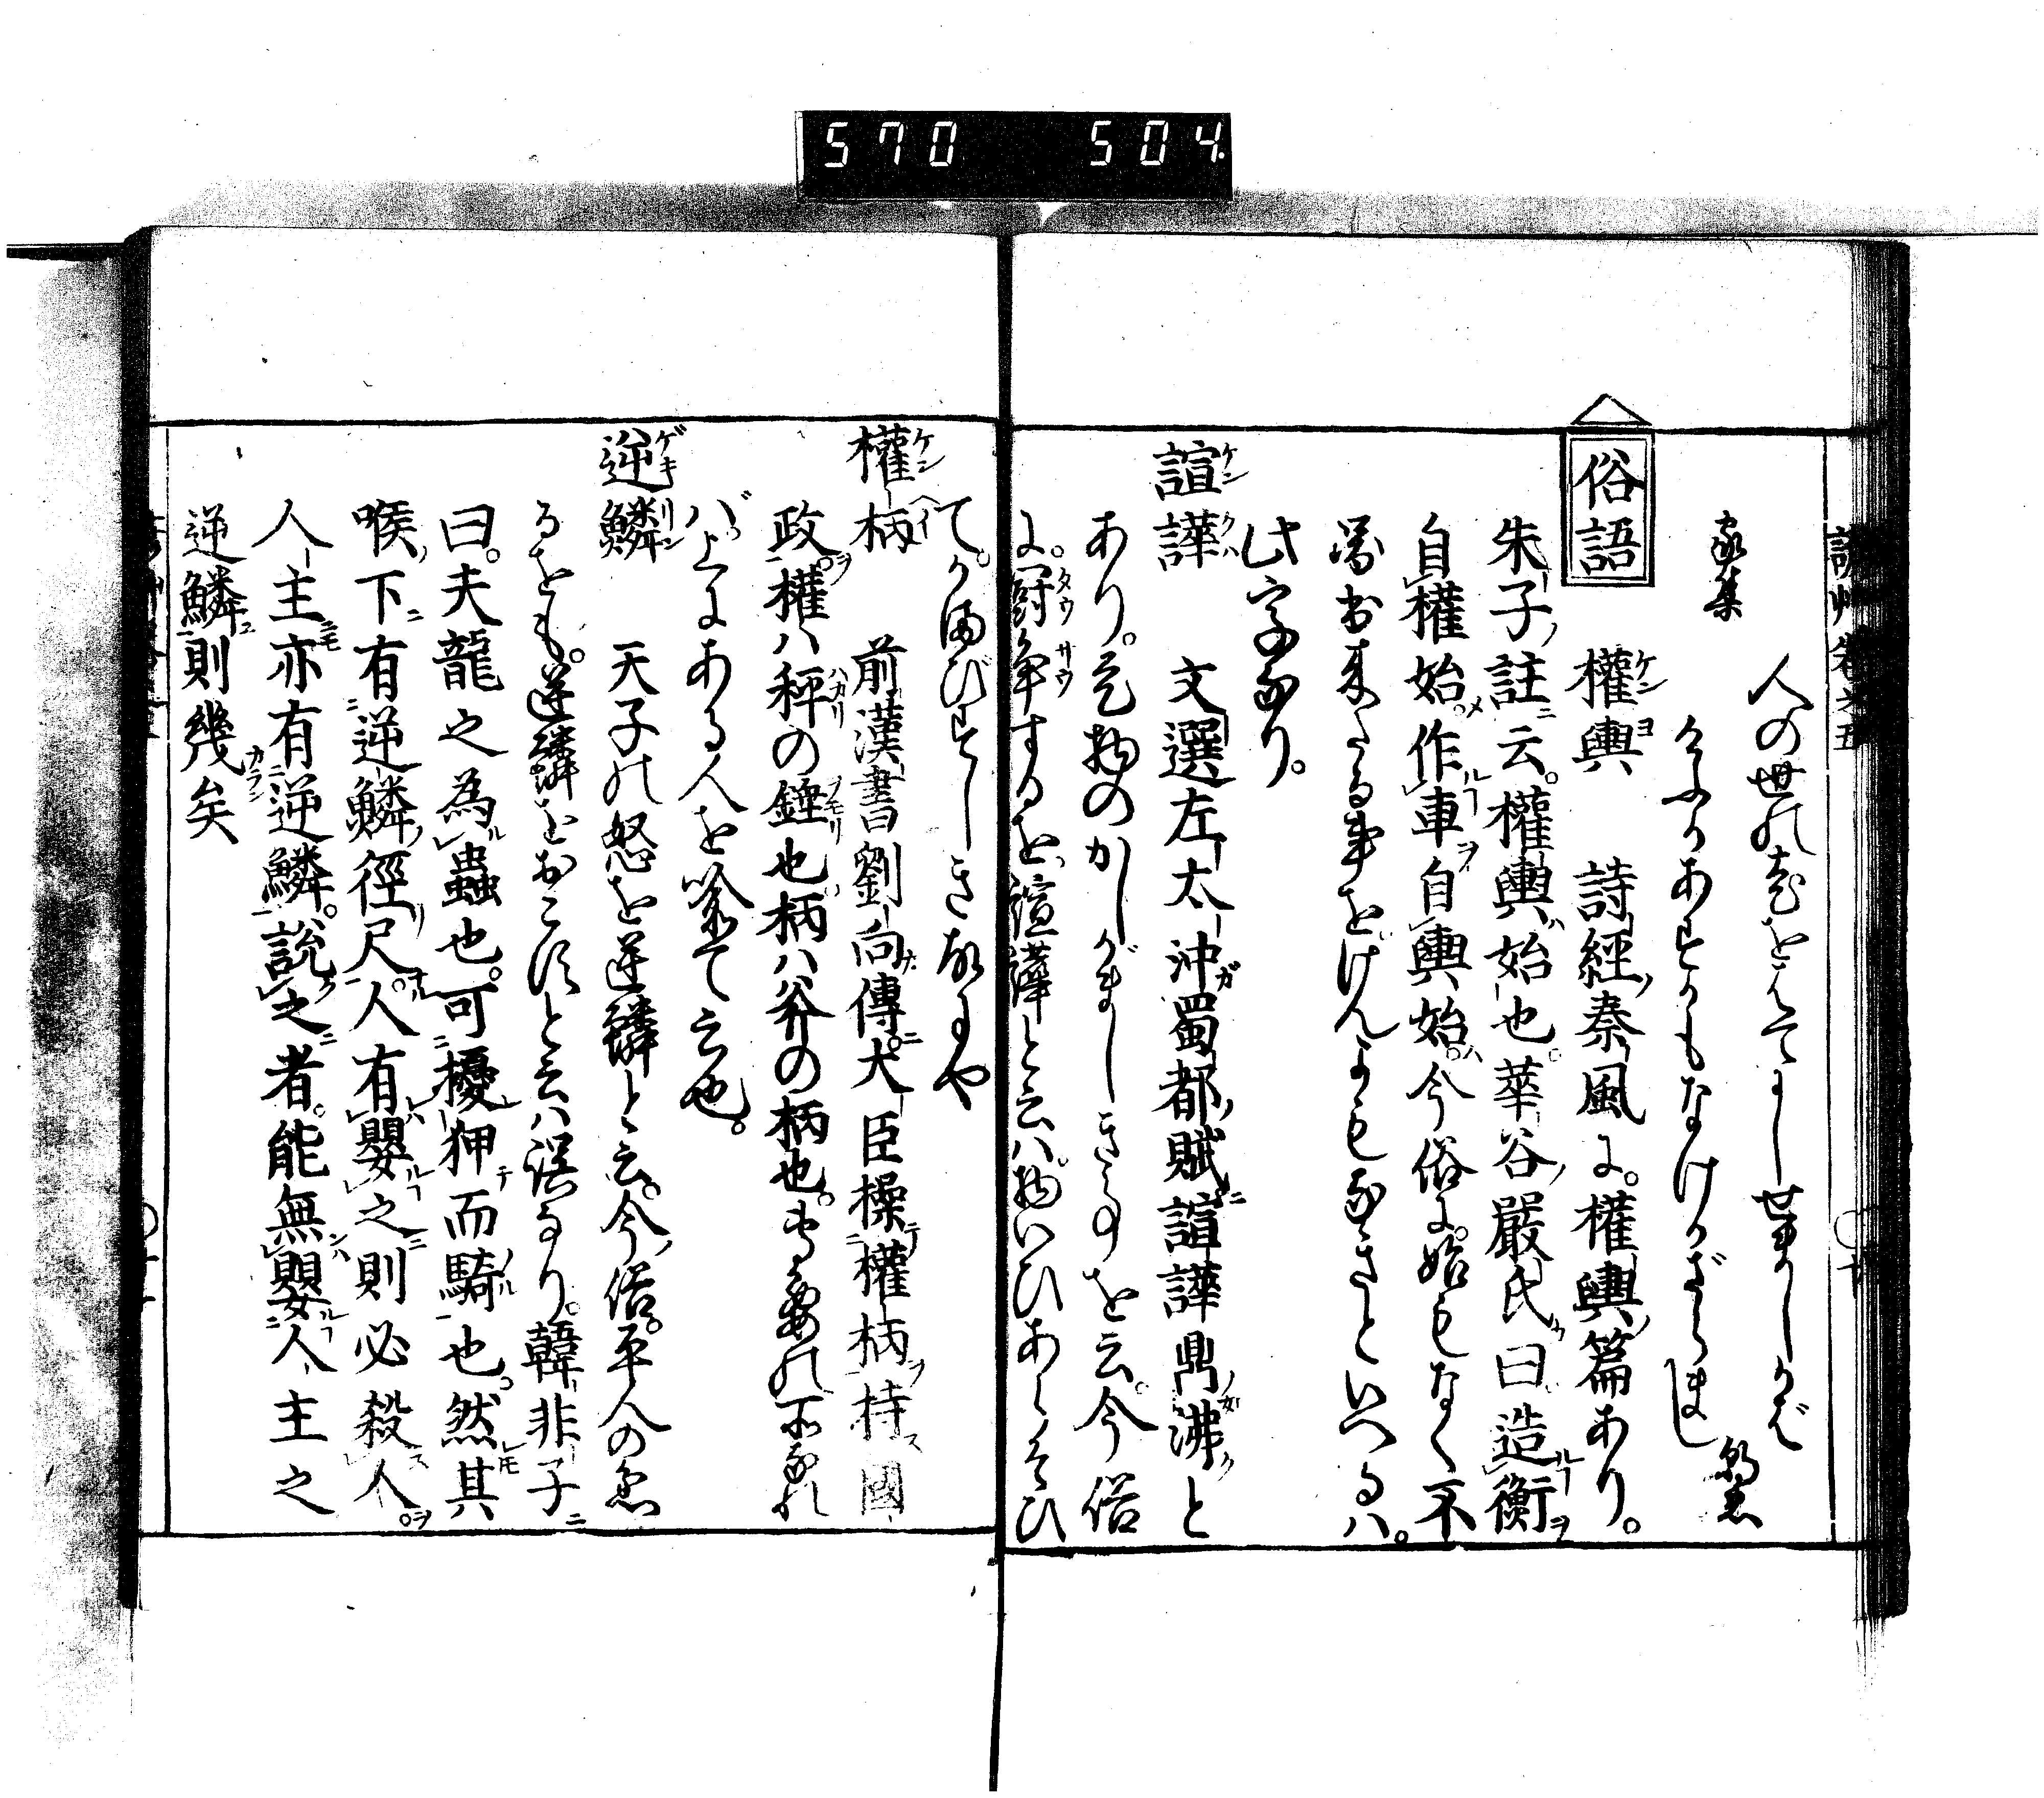 570 504
人の世のをはてし世しかば
家集
けふかあすかもなげかざらまし
俗語
權輿 詩經秦風に。權輿篇あり。
朱子註云。權輿始也。華谷嚴氏曰造衡
自權始。作車自輿始。今俗に。始もなく不
圖出來たる事をけんよもなきといへるハ。
此字なり。
諠譁 文選左太沖蜀都賦諠譁鼎沸と
あり。是物のかしがましき事を云。今俗
に。鬪争するを、諠譁と云ハ。物いひあらそひ
て。かまびすしき故にや
權柄 前漢書劉向傳。大臣操權柄持國
政。權ハ秤の錘也柄ハ斧の柄也。
バ上にある人を喩て云也。
逆鱗 天子の怒を逆鱗と云。今俗。平人の怒
るをも。逆鱗をおこすと云ハ誤なり。韓非子
曰。夫龍之為蟲也。可擾狎而騎也。然其
喉下有逆鱗徑尺。人有嬰之則必殺人。
人主亦有逆鱗。說之者。能無嬰人主之
逆鱗則幾矣